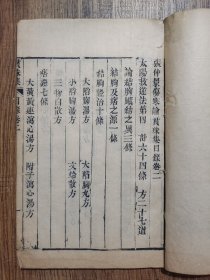 張仲景傷寒論貫珠集目錄卷二
太陽救逆法第四 計六十四條 方二十七道
論結胸臟結之異三條
論結胸及痞之源一條
結胸證治十條
大陷胸湯方 大陷胸丸方
小陷胸湯方 文蛤散方
三物白散方
痞證七條
大黃黃連瀉心湯方 附子瀉心湯方
貫珠集 目錄卷二